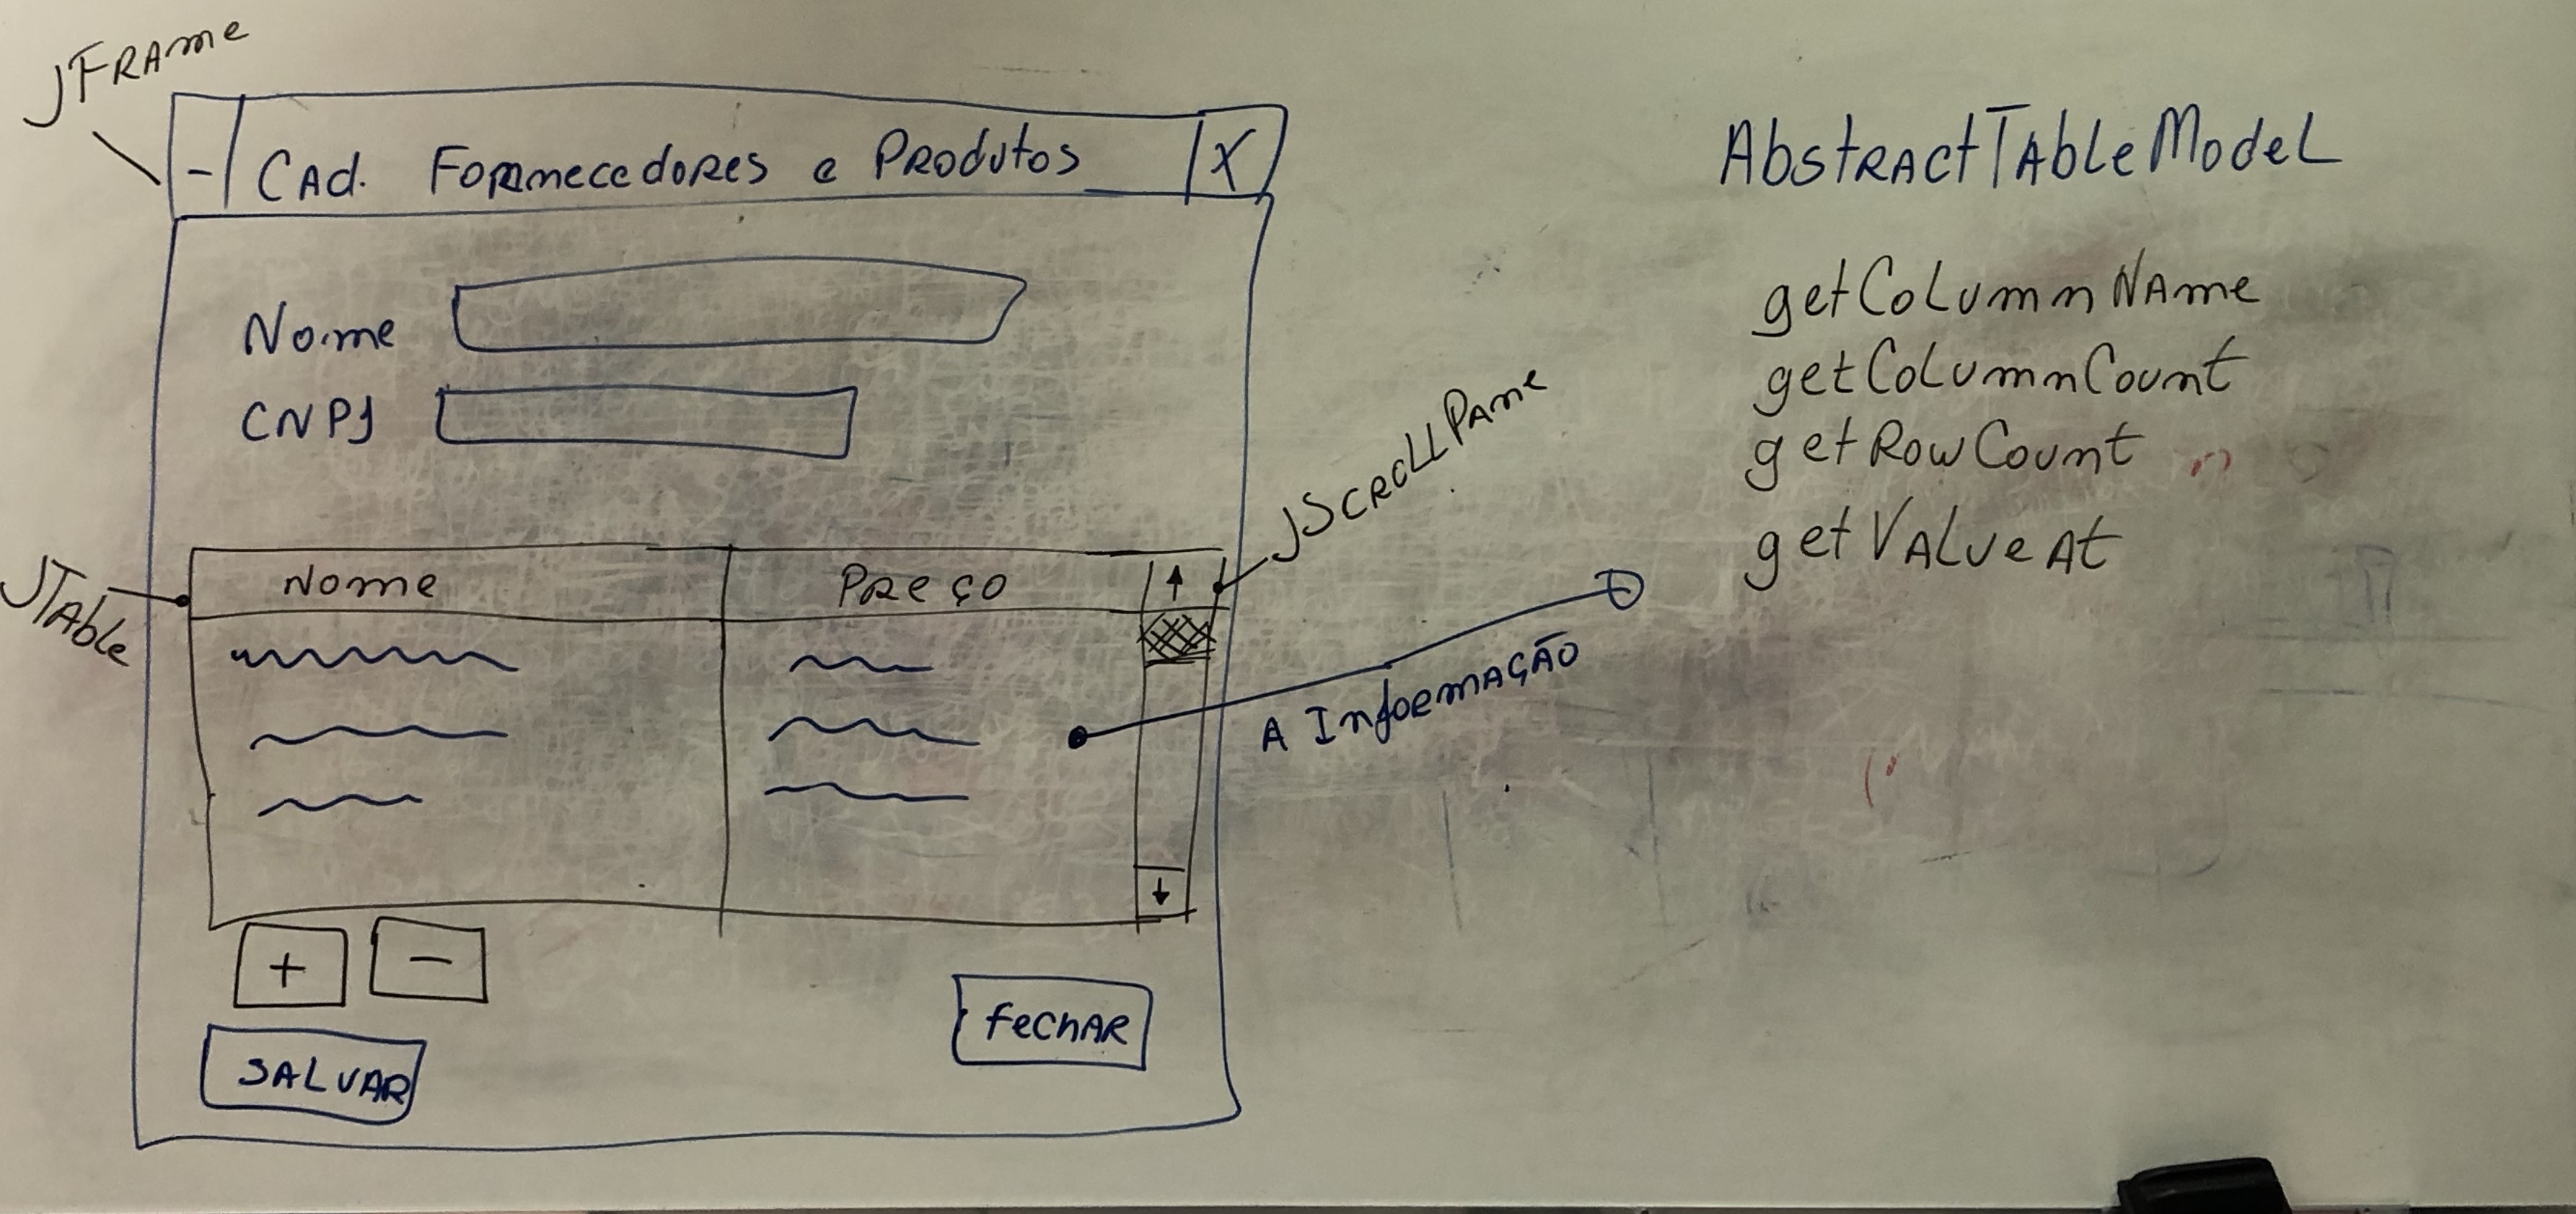 JFrame
- Cad. Fornecedores e Produtos X
Nome
CNPJ
JTable
Nome Preço ↑
JScrollPane
A Informação
↓
+ -
Fechar
Salvar
AbstractTableModel
getColumnName
getColumnCount
getRowCount
getValueAt